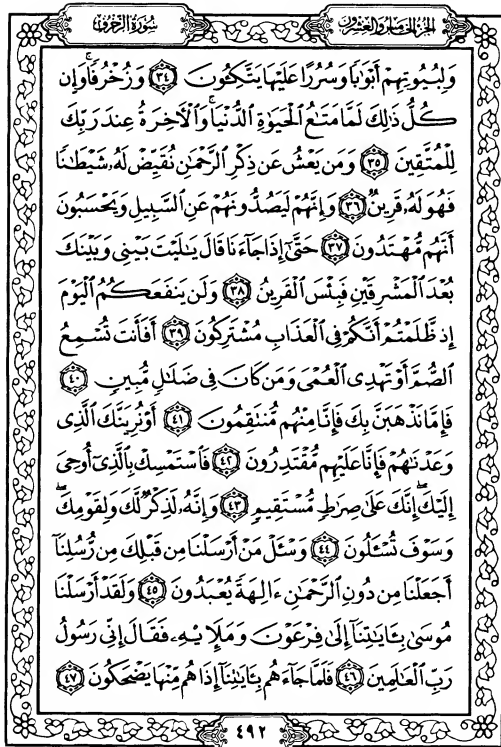 الجزء الخامس والعشرون
سورة الزخرف
وَلِبُيُوتِهِمْ أَبْوَٰبًا وَسُرُرًا عَلَيْهَا يَتَّكِـُٔونَ ﴿٣٤﴾ وَزُخْرُفًا ۚ وَإِن
كُلُّ ذَٰلِكَ لَمَّا مَتَٰعُ ٱلْحَيَوٰةِ ٱلدُّنْيَا ۚ وَٱلْـَٔاخِرَةُ عِندَ رَبِّكَ
لِلْمُتَّقِينَ ﴿٣٥﴾ وَمَن يَعْشُ عَن ذِكْرِ ٱلرَّحْمَٰنِ نُقَيِّضْ لَهُۥ شَيْطَٰنًا
فَهُوَ لَهُۥ قَرِينٌ ﴿٣٦﴾ وَإِنَّهُمْ لَيَصُدُّونَهُمْ عَنِ ٱلسَّبِيلِ وَيَحْسَبُونَ
أَنَّهُم مُّهْتَدُونَ ﴿٣٧﴾ حَتَّىٰٓ إِذَا جَآءَنَا قَالَ يَٰلَيْتَ بَيْنِى وَبَيْنَكَ
بُعْدَ ٱلْمَشْرِقَيْنِ فَبِئْسَ ٱلْقَرِينُ ﴿٣٨﴾ وَلَن يَنفَعَكُمُ ٱلْيَوْمَ
إِذ ظَّلَمْتُمْ أَنَّكُمْ فِى ٱلْعَذَابِ مُشْتَرِكُونَ ﴿٣٩﴾ أَفَأَنتَ تُسْمِعُ
ٱلصُّمَّ أَوْ تَهْدِى ٱلْعُمْىَ وَمَن كَانَ فِى ضَلَٰلٍ مُّبِينٍ ﴿٤٠﴾
فَإِمَّا نَذْهَبَنَّ بِكَ فَإِنَّا مِنْهُم مُّنتَقِمُونَ ﴿٤١﴾ أَوْ نُرِيَنَّكَ ٱلَّذِى
وَعَدْنَٰهُمْ فَإِنَّا عَلَيْهِم مُّقْتَدِرُونَ ﴿٤٢﴾ فَٱسْتَمْسِكْ بِٱلَّذِىٓ أُوحِىَ
إِلَيْكَ ۖ إِنَّكَ عَلَىٰ صِرَٰطٍ مُّسْتَقِيمٍ ﴿٤٣﴾ وَإِنَّهُۥ لَذِكْرٌ لَّكَ وَلِقَوْمِكَ ۖ
وَسَوْفَ تُسْـَٔلُونَ ﴿٤٤﴾ وَسْـَٔلْ مَنْ أَرْسَلْنَا مِن قَبْلِكَ مِن رُّسُلِنَآ
أَجَعَلْنَا مِن دُونِ ٱلرَّحْمَٰنِ ءَالِهَةً يُعْبَدُونَ ﴿٤٥﴾ وَلَقَدْ أَرْسَلْنَا
مُوسَىٰ بِـَٔايَٰتِنَآ إِلَىٰ فِرْعَوْنَ وَمَلَإِيْهِۦ فَقَالَ إِنِّى رَسُولُ
رَبِّ ٱلْعَٰلَمِينَ ﴿٤٦﴾ فَلَمَّا جَآءَهُم بِـَٔايَٰتِنَآ إِذَا هُم مِّنْهَا يَضْحَكُونَ ﴿٤٧﴾
٤٩٢